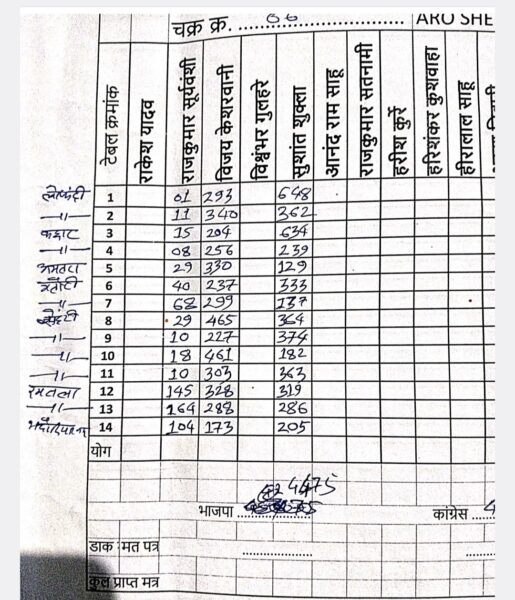 चक्र क्र. .... 06 .... ARO SHE
टेबल क्रमांक राकेश यादव राजकुमार सूर्यवंशी विजय केशरवानी विश्वंभर गुलहरे सुशांत शुक्ला आनंद राम साहू राजकुमार सतनामी हरीश कुर्रे हरिशंकर कुशवाहा हीरालाल साहू
1 01 293 648
–॥– 2 11 340 362
3 15 204 634
–॥– 4 08 256 239
5 29 330 129
6 40 237 333
–॥– 7 68 299 137
8 29 465 364
–॥– 9 10 227 374
–॥– 10 18 461 182
–॥– 11 10 303 363
रमतला 12 145 328 319
–॥– 13 164 288 286
14 104 173 205
योग
4475
भाजपा .................. कांग्रेस ....4
डाक मत पत्र ..................
कुल प्राप्त मत्र